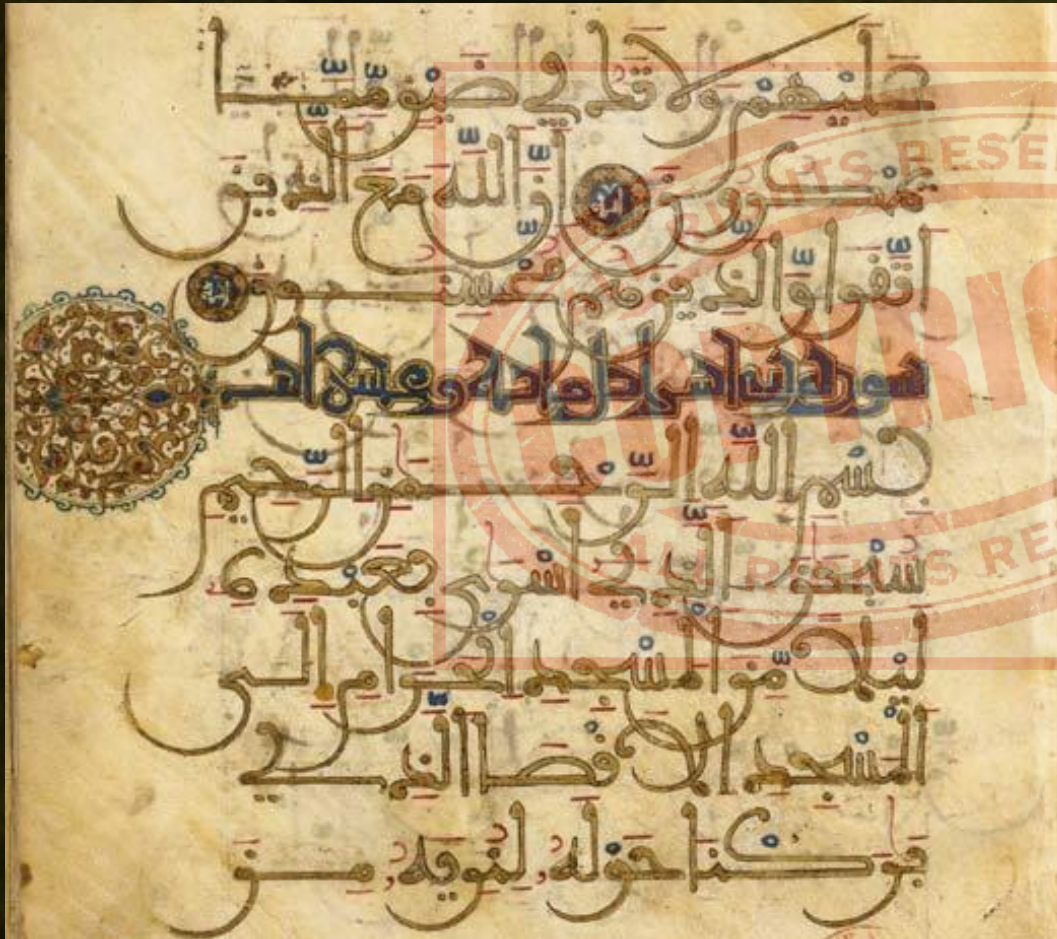 عليهم ولا تك في ضيق مما
يمكرون ان الله مع الذين
اتقوا والذين هم محسنون
سورة بني اسرايل ماية وعشر ايات
بسم الله الرحمن الرحيم
سبحن الذي اسرى بعبده
ليلا من المسجد الحرام الى
المسجد الاقصا الذي
بركنا حوله لنريه من
RIGHTS RESE
COPYRIG
ALL RIGHTS RE